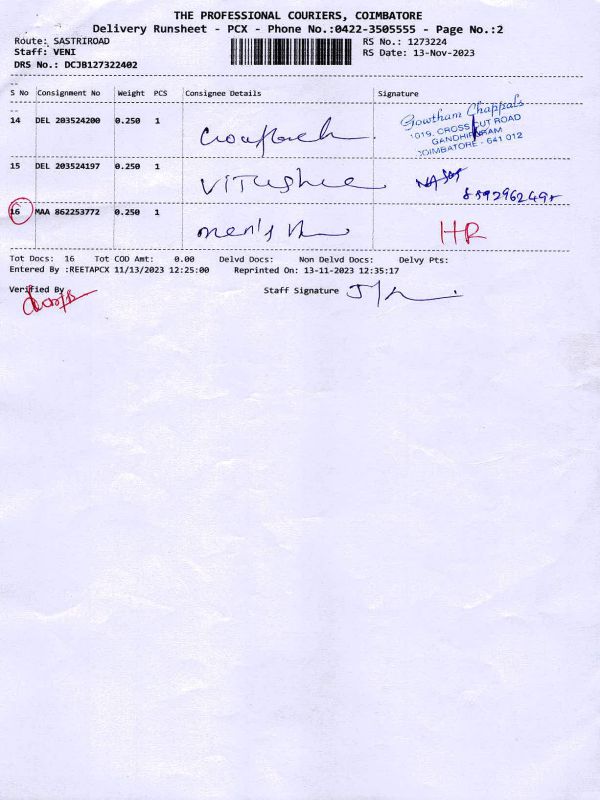 THE PROFESSIONAL COURIERS, COIMBATORE
Delivery Runsheet - PCX - Phone No.:0422-3505555 - Page No.:2
Route: SASTRIROAD RS No.: 1273224
Staff: VENI RS Date: 13-Nov-2023
DRS No.: DCJB127322402
S No Consignment No Weight PCS Consignee Details Signature
14 DEL 203524200 0.250 1
Gowtham Chappals
1019, CROSS CUT ROAD
GANDHIPURAM
COIMBATORE - 641 012
15 DEL 203524197 0.250 1
16 MAA 862253772 0.250 1 men's HR
Tot Docs: 16 Tot COD Amt: 0.00 Delvd Docs: Non Delvd Docs: Delvy Pts:
Entered By :REETAPCX 11/13/2023 12:25:00 Reprinted On: 13-11-2023 12:35:17
Verified By Staff Signature